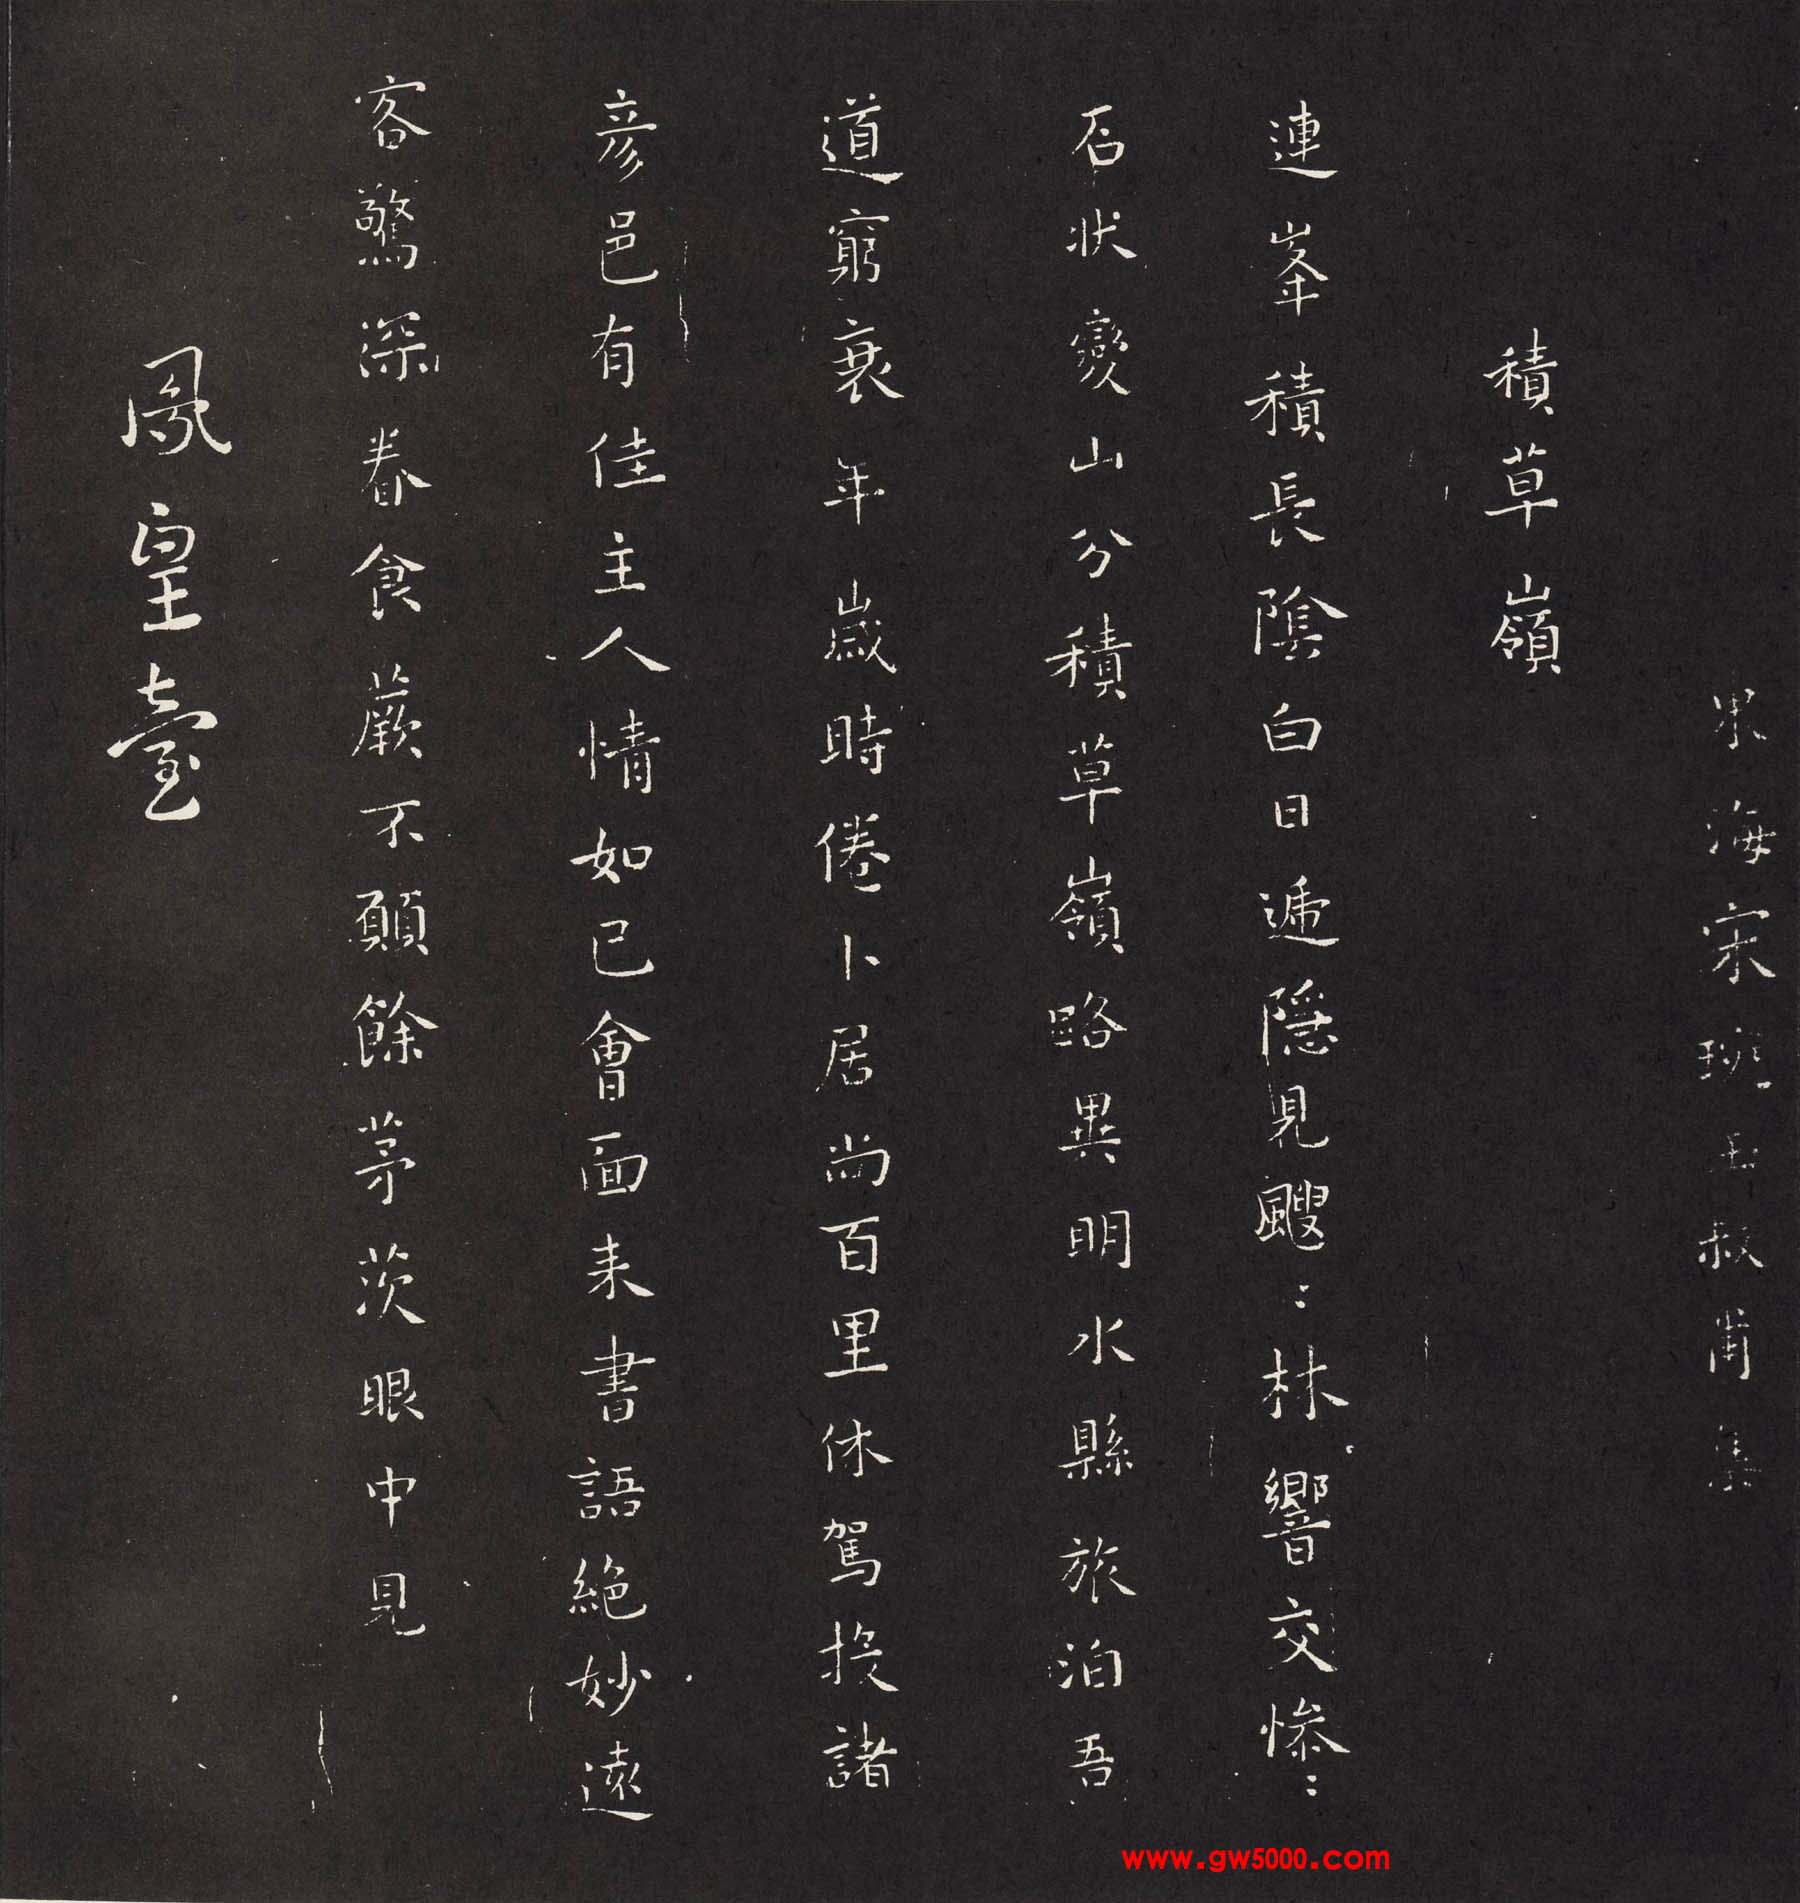 東海宋琬玉叔甫集
積草嶺
連峯積長陰白日遞隱見颼〻林響交慘〻
石狀變山分積草嶺路異明水縣旅泊吾
道窮衰年歲時倦卜居尚百里休駕投諸
彦邑有佳主人情如已會面来書語絶妙遠
客驚深眷食蕨不願餘茅茨眼中見
鳳皇臺
www.gw5000.com